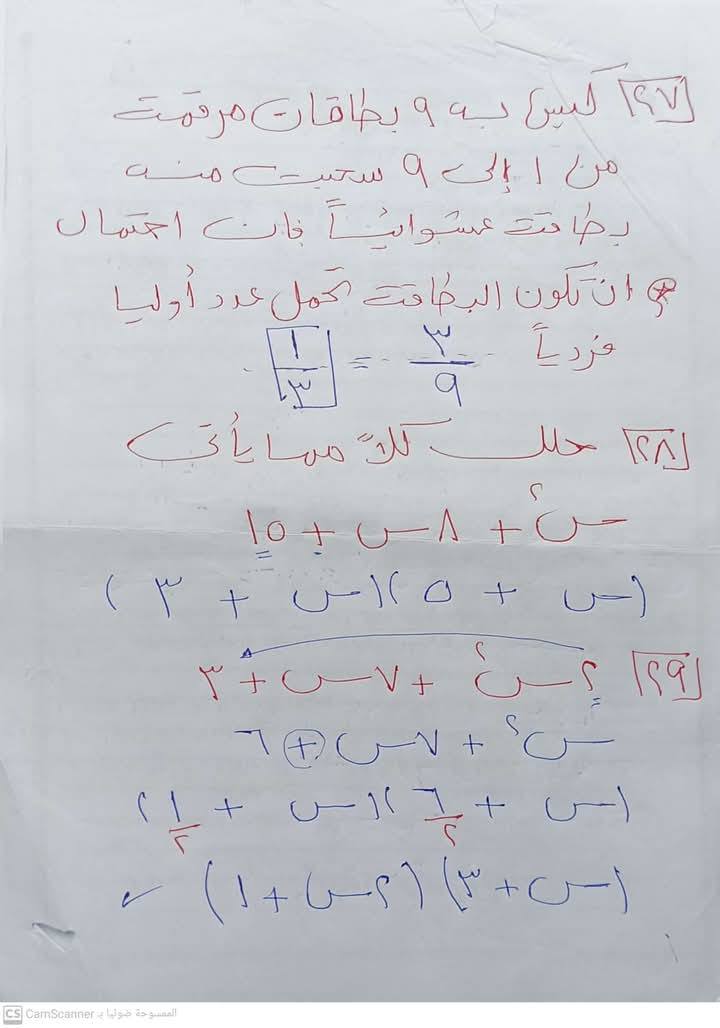 [٢٧] كيس به ٩ بطاقات مرقمة
من ١ إلى ٩ سحبت منه
بطاقة عشوائياً فإن احتمال
ان تكون البطاقة تحمل عدد أوليا
فردياً ٣/٩ = ١/٣
[٢٨] حلل كلاً مما يأتى
س٢ + ٨س + ١٥
(س + ٥)(س + ٣)
[٢٩] ٢س٢ + ٧س + ٣
س٢ + ٧س + ٦
(س + ٦/٢)(س + ١/٢)
(س + ٣)(٢س + ١) ✓
CS CamScanner الممسوحة ضوئيا بـ